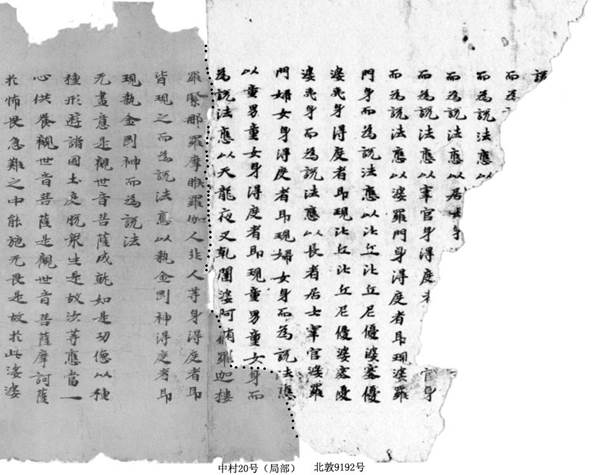 說
而為
而為說法
而為說法應以居士身
而為說法應以宰官身得度者 官身
而為說法應以婆羅門身得度者即現婆羅
門身而為說法應以比丘比丘尼優婆塞優
婆夷身得度者即現比丘比丘尼優婆塞優
婆夷身而為說法應以長者居士宰官婆羅
門婦女身得度者即現婦女身而為說法應
以童男童女身得度者即現童男童女身而
為說法應以天龍夜叉乹闥婆阿脩羅迦樓
羅緊那羅摩睺羅伽人非人等身得度者即
皆現之而為說法應以執金剛神得度者即
現執金剛神而為說法
无盡意是觀世音菩薩成就如是功德以種
種形遊諸國土度脫眾生是故汝等應當一
心供養觀世音菩薩是觀世音菩薩摩訶薩
於怖畏急難之中能施无畏是故於此娑婆
中村20号（局部） 北敦9192号